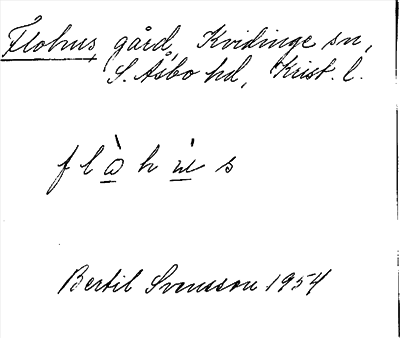 Flohus, gård, Kvidinge sn,
S. Åsbo hd, Krist. l.
f l ɷ̀ h ù s
Bertil Svensson 1954